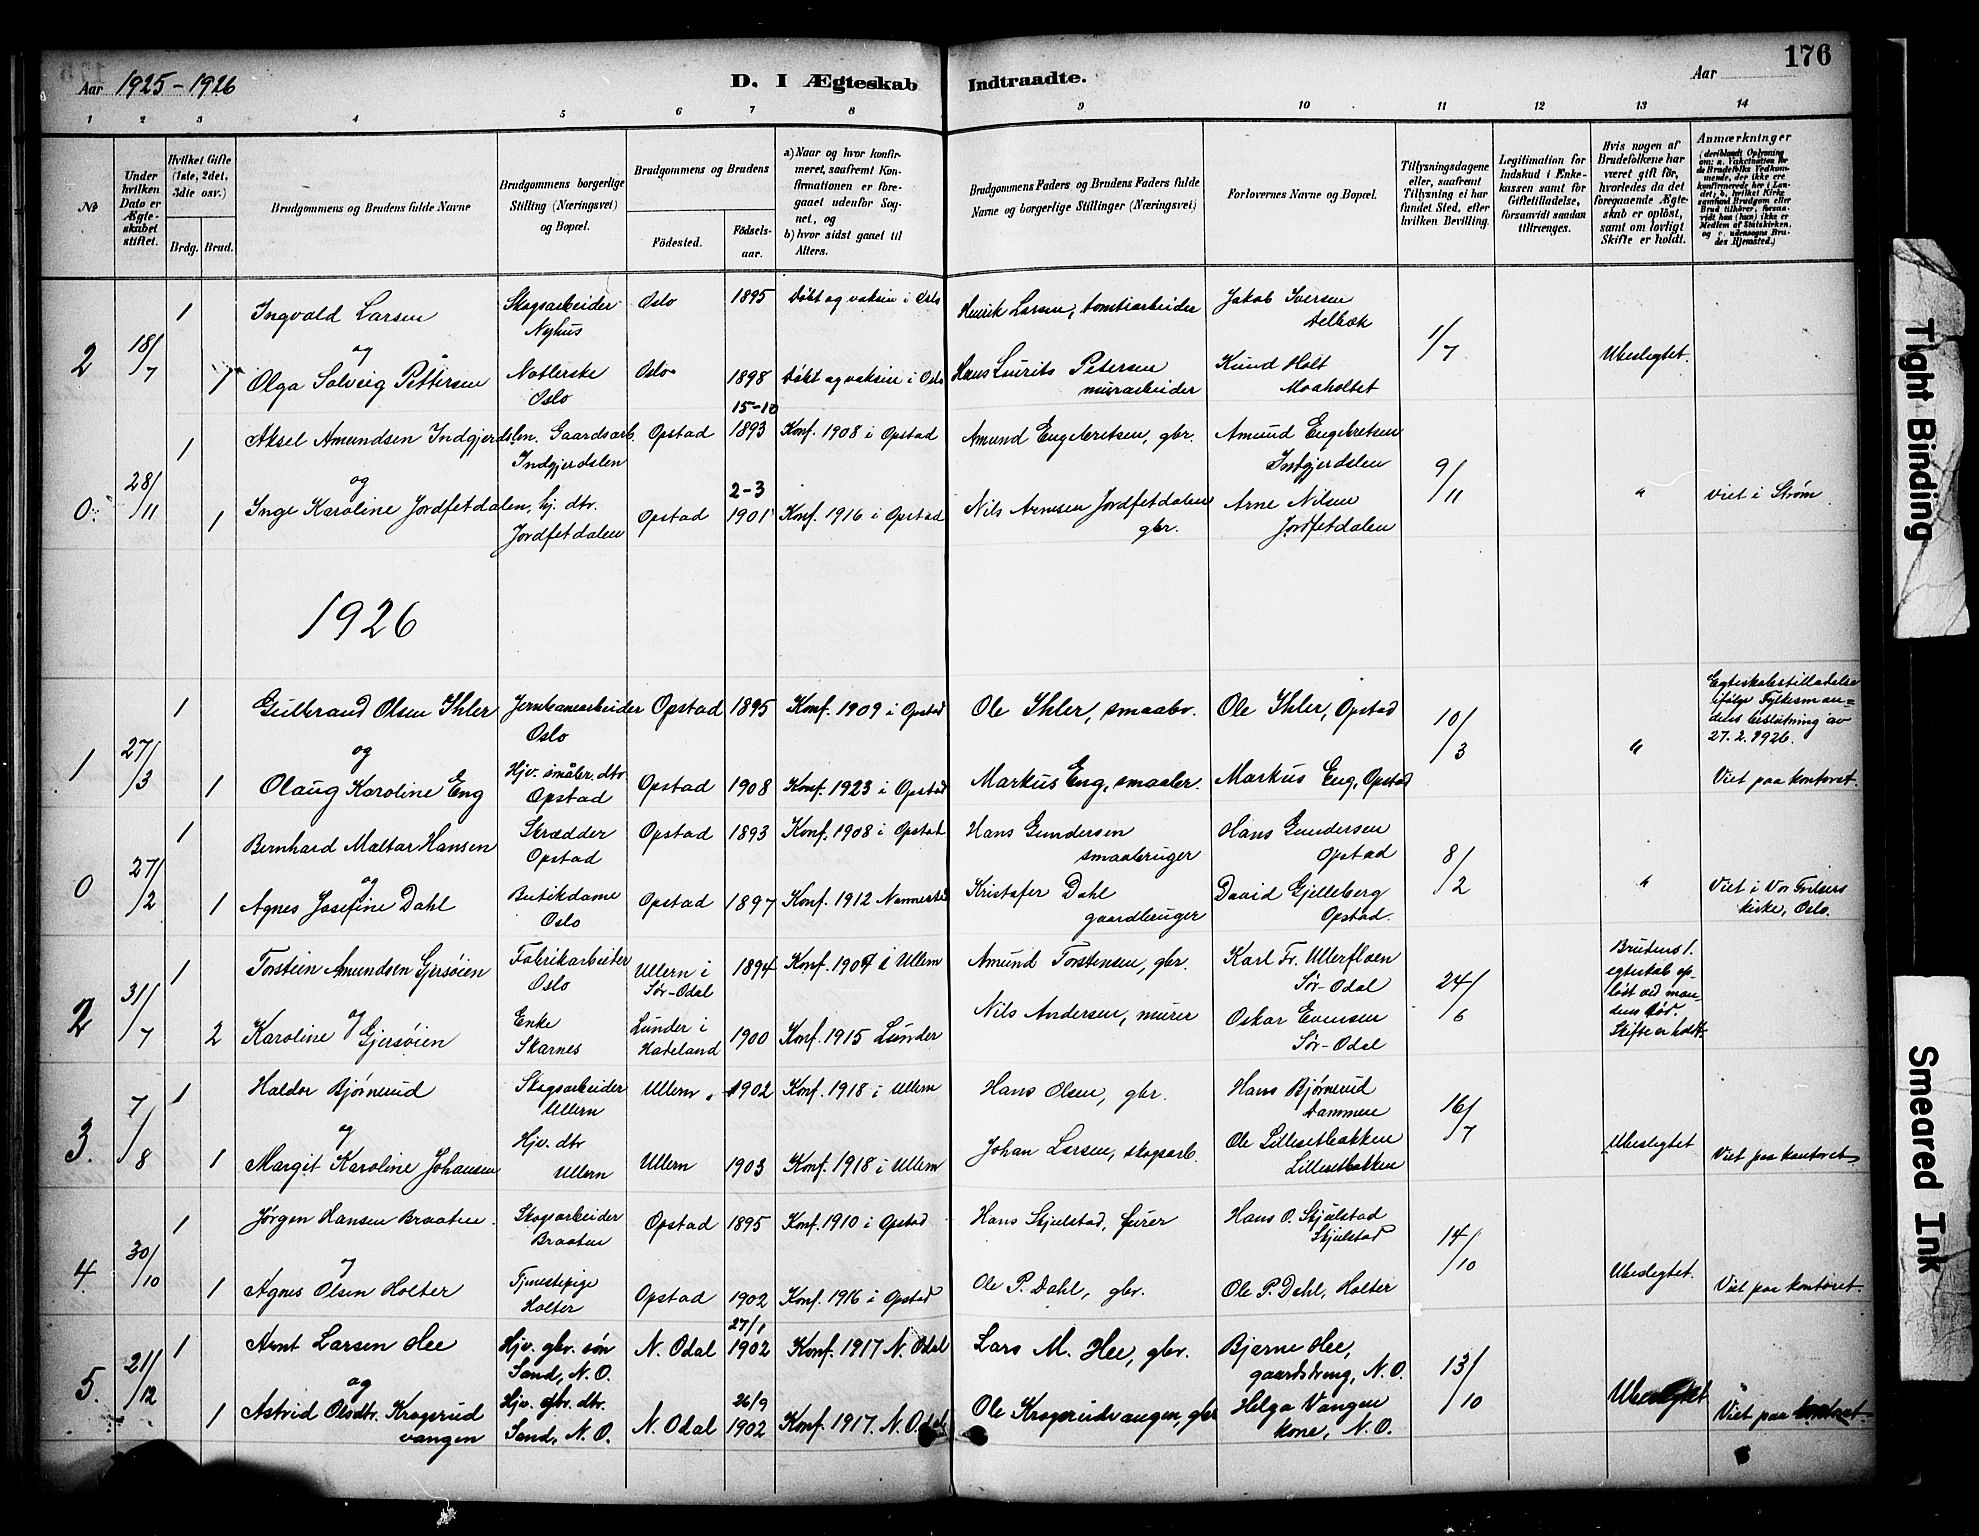 176
Aar 1925-1926
D. I Ægteskab Indtraadte.
Aar
1 2 3 4 5 6 7 8 9 10 11 12 13 14
No
Under hvilken Dato er Ægteskabet stiftet.
Hvilket Gifte (1ste, 2det, 3die osv.)
Brdg. Brud.
Brudgommens og Brudens fulde Navne
Brudgommens borgerlige Stilling (Næringsvei) og Bopæl.
Brudgommens og Brudens
Födested. Födsels-aar.
a) Naar og hvor konfirmeret, saafremt Konfirmationen er foregaaet udenfor Sognet, og
b) hvor sidst gaaet til Alters.
Brudgommens Faders og Brudens Faders fulde Navne og borgerlige Stillinger (Næringsvei)
Forlovernes Navne og Bopæl.
Tillysningsdagene eller, saafremt Tillysning ei har fundet Sted, efter hvilken Bevilling.
Legitimation for Indskud i Enkekassen samt for Giftetilladelse, forsaavidt saadan tiltrænges.
Hvis nogen af Brudefolkene har været gift før, hvorledes da det foregaaende Ægteskab er opløst, samt om lovligt Skifte er holdt.
Anmærkninger
2 18/7 1 Ingvald Larsen Skogsarbeider Nyhus Oslo 1895 Døbt og vaksin i Oslo Henrik Larsen, tomtiarbeider Jakob Iversen 1/7 Ubeslegtet.
og
1 Olga Solveig Pettersen Oslo Oslo 1898 Døbt og vaksin i Oslo Hans Lurits Petersen murarbeider Knud Holt Moaholtet
0 28/11 1 Aksel Amundsen Indgjerdslen. Gaardsarb. Indgjerdslen Opstad 15-10 1893 Konf. 1908 i Opstad Amund Engebretsen, gbr. Amund Engebretsen Indgjerdslen 9/11 " Viet i Strøm
og
1 Inge Karoline Jordfetdalen, hj. dtr. Jordfetdalen Opstad 2-3 1901 Konf. 1916 i Opstad Nils Arnesen Jordfetdalen gbr. Arne Nilsen Jordfetdalen
1926
1 27/3 1 Gulbrand Olsen Ihler Jernbanearbeider Oslo Opstad 1895 Konf. 1909 i Opstad Ole Ihler, smaabr. Ole Ihler, Opstad 10/3 " Egteskabstilladelse ifølge Fylkesmandens beslutning av 27.2.1926.
og
1 Olaug Karoline Eng Hjv. småbr. dtr. Opstad Opstad 1908 Konf. 1923 i Opstad Markus Eng, smaabr. Markus Eng, Opstad Viet paa kontoret.
0 27/2 1 Bernhard Maltar Hansen Skrædder Opstad Opstad 1893 Konf. 1908 i Opstad Hans Gundersen smaabruger Hans Gundersen Opstad 8/2 " Viet i Vor Frelsers kirke, Oslo.
og
1 Agnes Josefine Dahl Butikdame Oslo Opstad 1897 Konf. 1912 Nannestad Kristofer Dahl gaardbruger David Gjelleberg Opstad.
2 31/7 1 Torstein Amundsen Gjersøien Fabrikarbeider Oslo Ullern i Sør-Odal 1894 Konf. 1909 i Ullern Amund Torstensen, gbr. Karl Fr. Ullerfloen Sør-Odal 24/6 Brudens 1. egteskab opløst ved mandens død. Skifte er holdt.
og
2 Karoline Gjersøien Enke Skarnes Lunder i Hadeland 1900 Konf. 1915 Lunder Nils Andersen, murer Oskar Evensen Sør-Odal
3. 7/8 1 Haldor Bjørnerud Skogsarbeider Ullern Ullern 1902 Konf. 1918 i Ullern Hans Olsen, gbr. Hans Bjørnerud Dammen 16/7 Ubeslegtet Viet paa kontoret
og
1 Margit Karoline Johansen Hjv. dtr Ullern Ullern 1903 Konf. 1918 i Ullern Johan Larsen, skogsarb. Ole Lillesetbakken Lillesetbakken
4 30/10 1 Jørgen Hansen Braaten Skogsarbeider Braaten Opstad 1895 Konf. 1910 i Opstad Hans Skjulstad, furer Hans O. Skjulstad Skjulstad 14/10 Ubeslegtet. Viet paa kontoret.
og
1 Agnes Olsen Holter Tjenestepige Holter Opstad 1902 Konf. 1916 i Opstad Ole P. Dahl, gbr. Ole P. Dahl, Holter
5. 21/12 1 Arnt Larsen Hee Hjv. gbr. søn Sand, N.O. N. Odal 27/1 1902 Konf. 1917 N. Odal Lars M. Hee, gbr. Bjarne Hee, gaardsdreng, N.O. 13/10 Ubeslegtet Viet paa kontoret.
og
1 Astrid Olsdtr. Krogsrudvangen Hjv. gbr. dtr. Sand, N.O. N. Odal 26/9 1902 Konf. 1917. N. Odal Ole Krogsrudvangen, gbr Helga Vangen kone, N.O.
Tight Binding
Smeared Ink